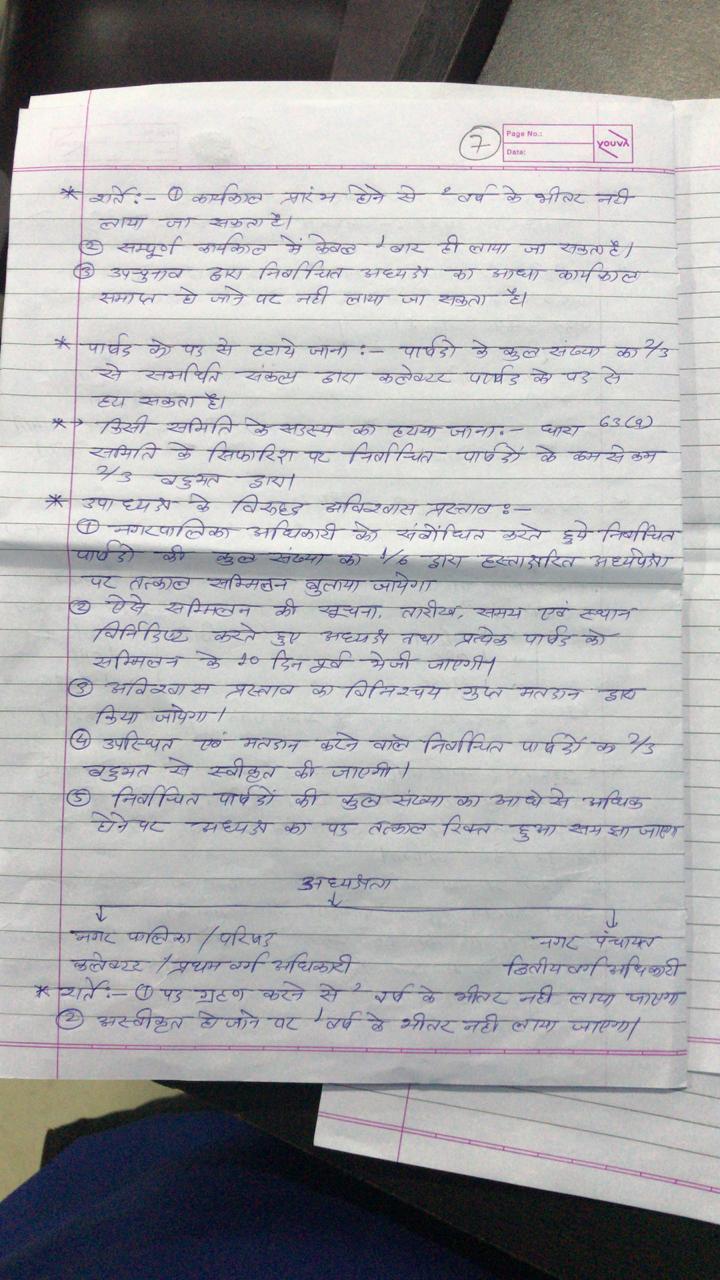 7
Page No.:
Date:
YOUVA
* शर्ते:- ① कार्यकाल प्रारंभ होने से २ वर्ष के भीतर नही
लाया जा सकता है।
② सम्पूर्ण कार्यकाल में केवल १ बार ही लाया जा सकता है।
③ उपचुनाव द्वारा निर्वाचित अध्यक्ष का आधा कार्यकाल
समाप्त हो जाने पर नही लाया जा सकता है।
* पार्षद को पद से हटाये जाना:- पार्षदो के कुल संख्या का 2/3
से समर्थित संकल्प द्वारा कलेक्टर पार्षद को पद से
हटा सकता है।
* → किसी समिति के सदस्य का हटाया जाना:- धारा 63(9)
समिति के सिफारिश पर निर्वाचित पार्षदों के कम से कम
2/3 बहुमत द्वारा।
* उपाध्यक्ष के विरुद्ध अविश्वास प्रस्ताव:-
① नगरपालिका अधिकारी को संबोंधित करते हुये निर्वाचित
पार्षदो की कुल संख्या का 1/6 द्वारा हस्ताक्षरित अध्यपेक्षा
पर तत्काल सम्मिलन बुलाया जायेगा
② ऐसे सम्मिलन की सूचना, तारीख, समय एवं स्थान
विनिर्दिष्ट करते हुए अध्यक्ष तथा प्रत्येक पार्षद को
सम्मिलन के 10 दिन पूर्व भेजी जाएगी।
③ अविश्वास प्रस्ताव का विनिश्चय गुप्त मतदान द्वारा
किया जायेगा।
④ उपस्थित एवं मतदान करने वाले निर्वाचित पार्षदों के 2/3
बहुमत से स्वीकृत की जाएगी।
⑤ निर्वाचित पार्षदों की कुल संख्या का आधे से अधिक
होने पर अध्यक्ष का पद तत्काल रिक्त हुआ समझा जाएगा
अध्यक्षता
नगर पालिका / परिषद नगर पंचायत
कलेक्टर / प्रथम वर्ग अधिकारी द्वितीय वर्ग अधिकारी
* शर्ते:- ① पद ग्रहण करने से १ वर्ष के भीतर नही लाया जाएगा
② अस्वीकृत हो जाने पर १ वर्ष के भीतर नही लाया जाएगा।